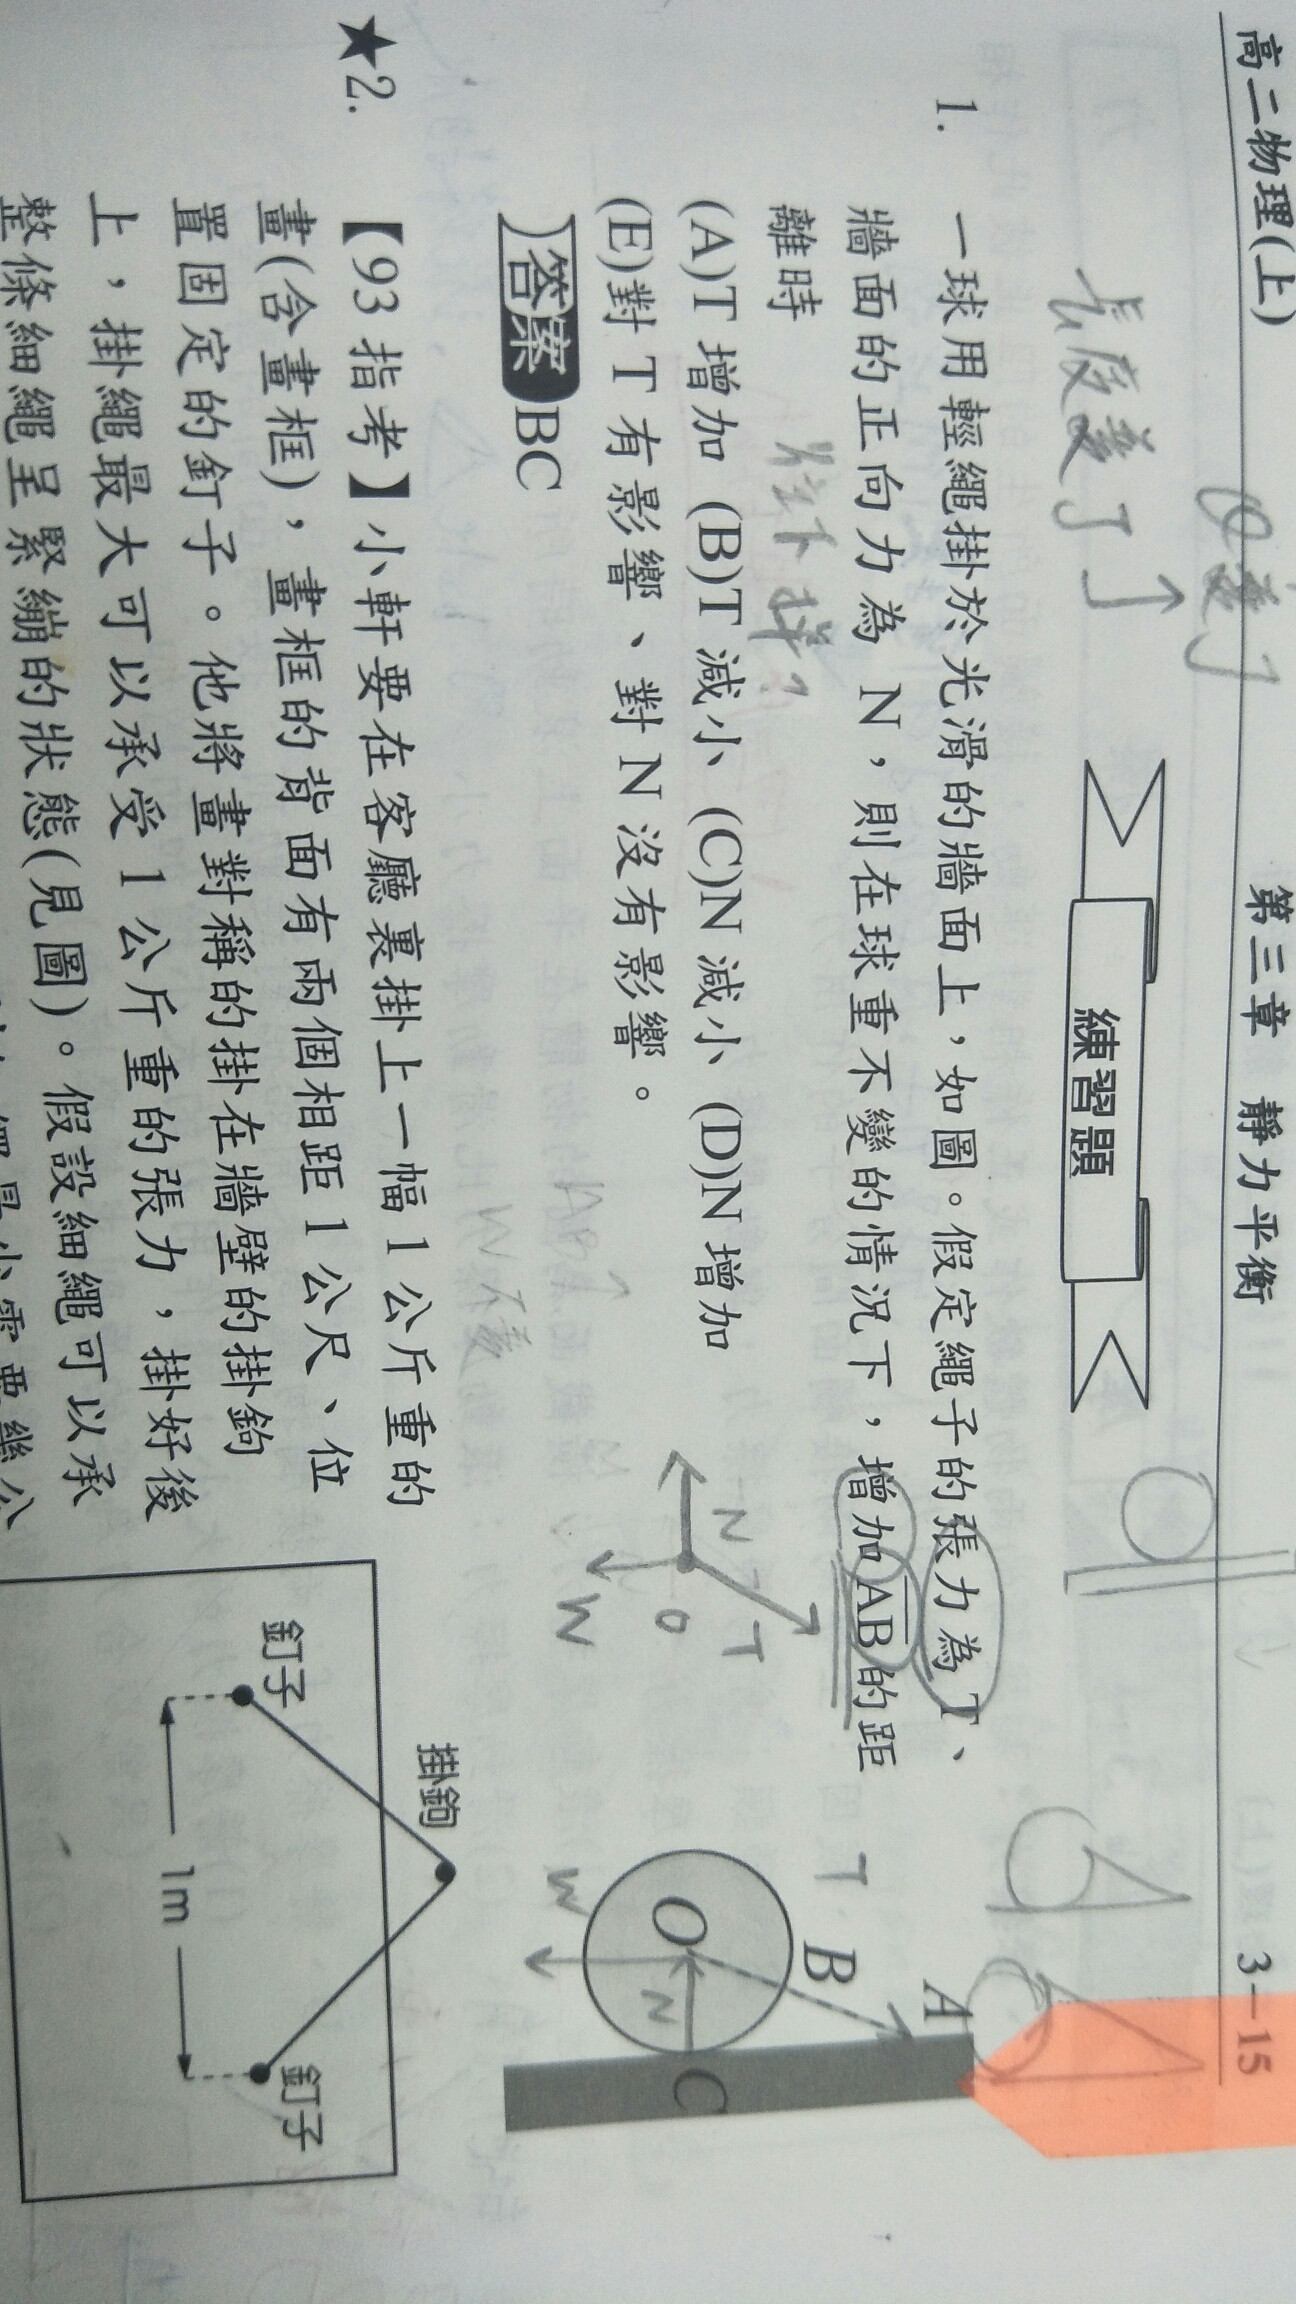 高二物理(上)
第三章 靜力平衡
3-15
θ變了
長度變了
練習題
1. 一球用輕繩掛於光滑的牆面上，如圖。假定繩子的張力為T、
牆面的正向力為 N，則在球重不變的情況下，增加AB的距
離時
往下掉?
(A)T 增加 (B)T 減小 (C)N 減小 (D)N 增加
(E)對 T 有影響、對 N 沒有影響。
答案 BC
W不變
N
T
O
W
T
A
B
O
N
C
W
★2. 【93 指考】小軒要在客廳裏掛上一幅 1 公斤重的
畫(含畫框)，畫框的背面有兩個相距 1 公尺、位
置固定的釘子。他將畫對稱的掛在牆壁的掛鉤
上，掛繩最大可以承受 1 公斤重的張力，掛好後
整條細繩呈緊繃的狀態(見圖)。假設細繩可以承
掛鉤
釘子
釘子
1m